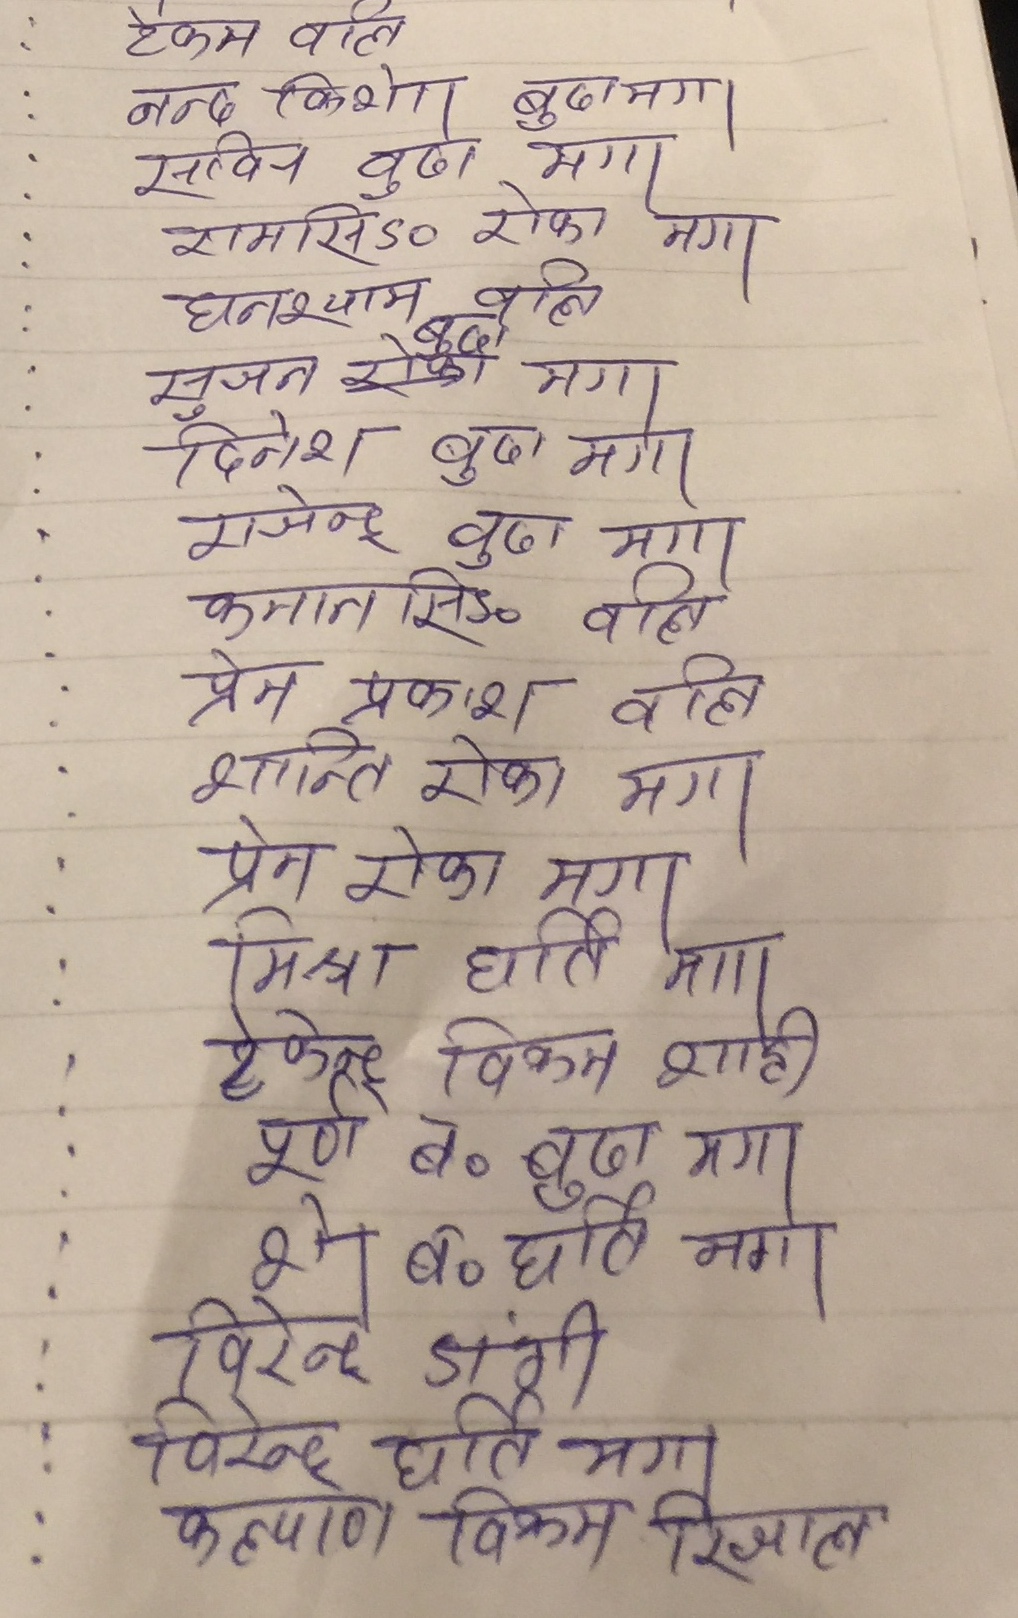 टेकम वलि
नन्द किशोर बुढामगर
सविन बुढा मगर
रामसिं० रोका मगर
घनश्याम वलि
सुजन बुढा मगर
दिनेश बुढा मगर
राजेन्द्र बुढा मगर
कमानसिं० वलि
प्रेम प्रकाश वलि
शान्ति रोका मगर
प्रेम रोका मगर
मित्रा घर्ति मगर
टेकेन्द्र विक्रम शाही
पूर्ण ब० बुढा मगर
शेर ब० घर्ति मगर
विरेन्द्र डांगी
विरेन्द्र घर्ति मगर
कल्याण विक्रम रिजाल